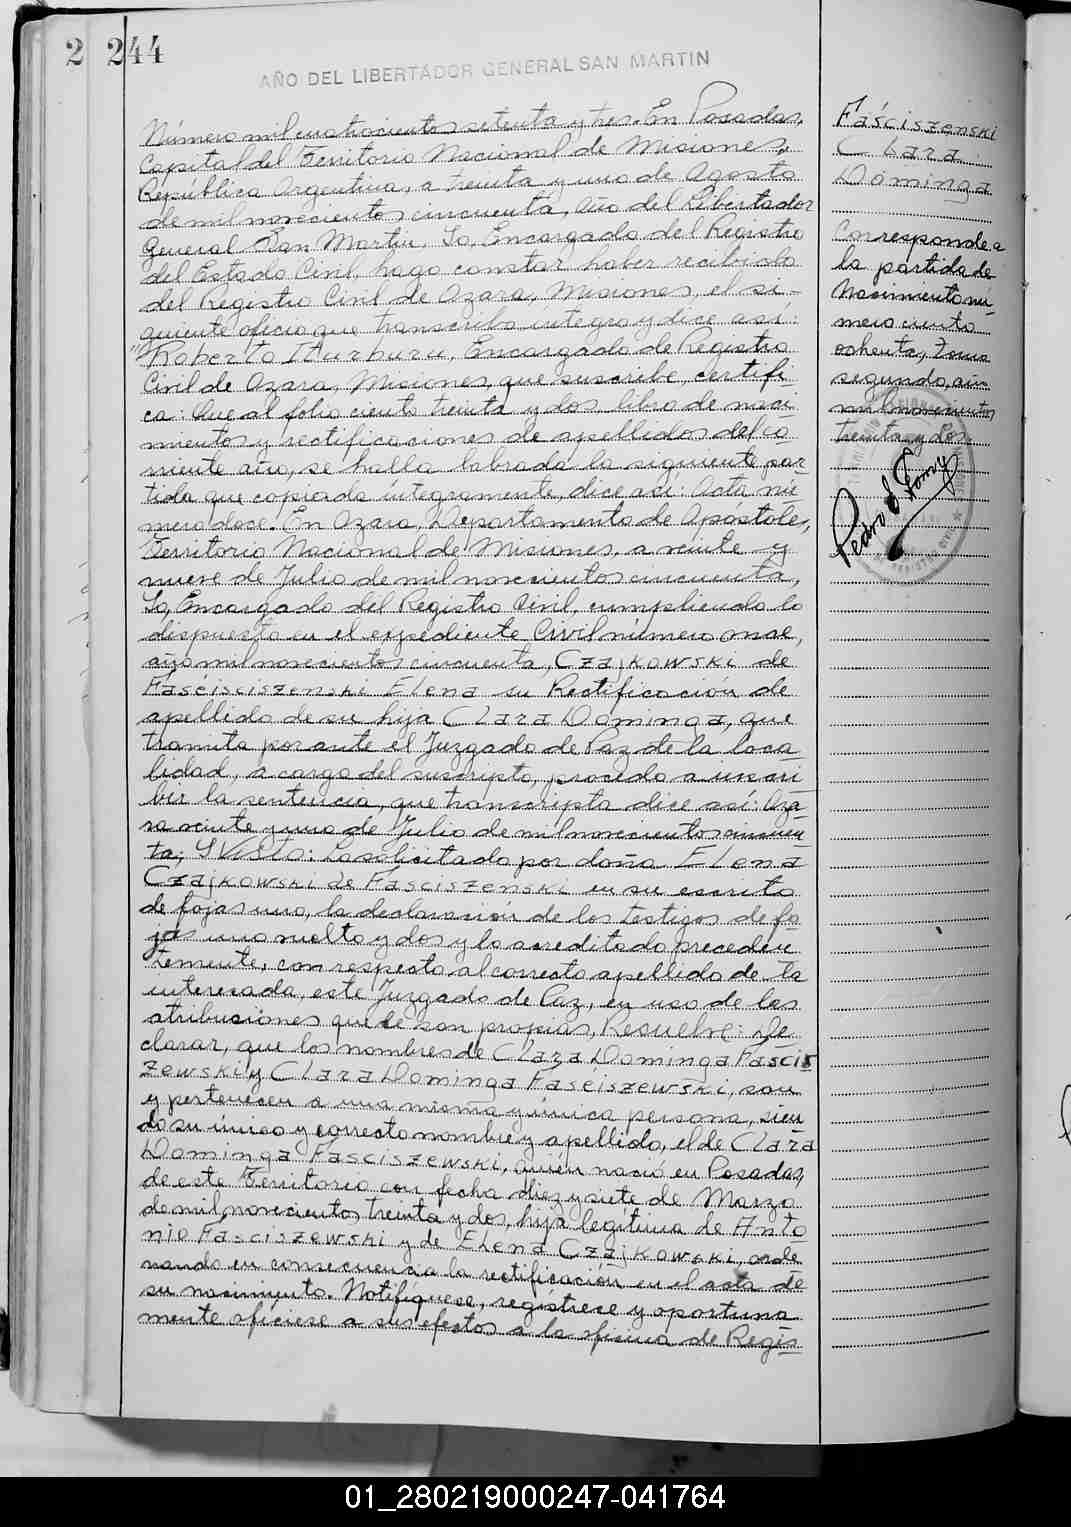 2 244
AÑO DEL LIBERTADOR GENERAL SAN MARTIN
Número mil cuatrocientos setenta y tres. En Posadas,
Capital del Territorio Nacional de Misiones,
República Argentina, a treinta y uno de Agosto
de mil novecientos cincuenta, Año del Libertador
General San Martin, Yo, Encargado del Registro
del Estado Civil, hago constar haber recibido
del Registro Civil de Azara, Misiones, el si-
guiente oficio que transcribo integro y dice asi:
"Roberto Iturburu, Encargado de Registro
Civil de Azara, Misiones, que suscribe, certifi-
ca: Que al folio ciento treinta y dos, libro de naci
mientos y rectificaciones de apellidos del co
rriente año, se halla labrada la siguiente par-
tida que copiada integramente, dice asi: Acta nú
mero doce. En Azara, Departamento de Apóstoles,
Territorio Nacional de Misiones, a veinte y
nueve de Julio de mil novecientos cincuenta,
Yo, Encargado del Registro Civil, cumpliendo lo
dispuesto en el expediente Civil número once,
año mil novecientos cincuenta, Czajkowski de
Fasćisciszenski Elena su Rectificación de
apellido de su hija Clara Dominga, que
tramita por ante el Juzgado de Paz de la loca
lidad, a cargo del suscripto, procedo a inscri
bir la sentencia, que transcripta dice asi: Aza-
ra veinte y uno de Julio de mil novecientos cincuen
ta; Y Visto: Lo solicitado por doña Elena
Czajkowski de Fasciszenski en su escrito
de fojas uno, la declaración de los testigos de fo
jas uno vuelto y dos y lo acreditado preceden
temente, con respecto al correcto apellido de la
interesada, este Juzgado de Paz, en uso de las
atribuciones que le son propias, Resuelve: De
clarar, que los nombres de Clara Dominga Fascis
zewski y Clara Dominga Fasciszewski, son
y pertenecen a una misma y única persona, sien
do su único y correcto nombre y apellido, el de Clara
Dominga Fasciszewski, quién nació en Posadas,
de este Territorio con fecha diez y siete de Marzo
de mil novecientos treinta y dos, hija legítima de Anto
nio Fasciszewski y de Elena Czajkowski, orde
nando en consecuencia la rectificación en el acta de
su nacimiento. Notifíquese, regístrese y oportuna
mente ofíciese a sus efectos a la oficina de Regis
Faściszenski
Clara
Dominga
Corresponde a
la partida de
Nacimiento nú-
mero ciento
ochenta, Tomo
segundo, año
mil novecientos
treinta y dos.
Pedro
01_280219000247-041764